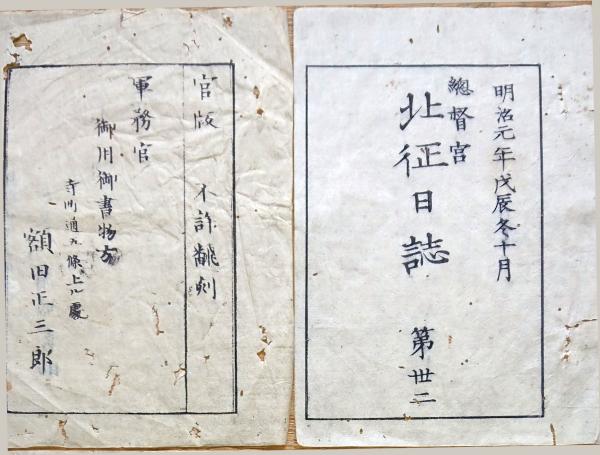 明治元年戊辰冬十月
總督宮
北征日誌
第卅二
官版
不許飜刻
軍務官
御用御書物方
寺町通五條上ル處
額田正三郎